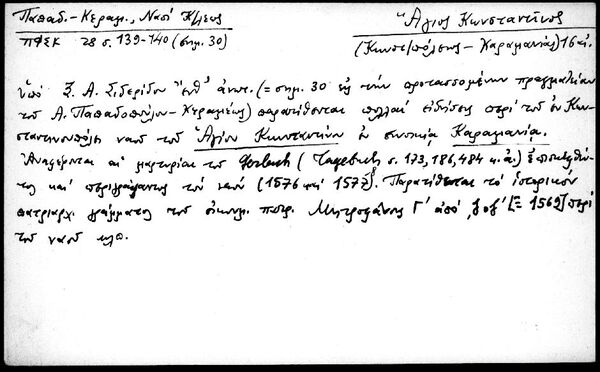 Παπαδ.-Κεραμ., Ναοί Κ/λεως
Ἅγιος Κωνσταντῖνος
ΠΦΣΚ 28 σ. 139-140 (σημ. 30)
(Κωνστ/πόλεως - Καραμανίας) 16 αἰ.
ὑπό Ξ. Α. Σιδερίδου ἐνθ' ἀνωτ. (= σημ. 30 εἰς τήν προτασσομένην πραγματείαν
τοῦ Α. Παπαδοπούλου-Κεραμέως) παρατίθενται πολλαί εἰδήσεις περί τοῦ ἐν Κων-
σταντινουπόλει ναοῦ τοῦ Ἁγίου Κωνσταντίνου ἐν συνοικίᾳ Καραμανίᾳ.
Ἀναφέρονται αἱ μαρτυρίαι τοῦ Gerlach (Tagebuch σ. 173, 186, 484 κ.ἀ.) ἐπισκεφθέν-
τος καί περιγράψαντος τόν ναόν (1576 καί 1577). Παρατίθεται τό ἱστορικόν
πατριαρχ. γράμματος τοῦ οἰκουμ. πατρ. Μητροφάνους Γ' ἀπό ζοζ' [= 1569] περί
τοῦ ναοῦ κλπ.